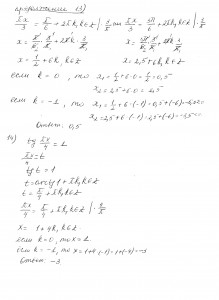 продолжение 13)
πx/3 = π/6 + 2πk, k∈Z |·3/π или πx/3 = 5π/6 + 2πk, k∈Z |·3/π
x = 1/2 + 6k, k∈Z x = 2,5 + 6k, k∈Z
если k = 0, то x₁ = 1/2 + 6·0 = 0,5
x₂ = 2,5 + 6·0 = 2,5
если k = -1, то
Ответ: 0,5
14)
tg πx/4 = 1
πx/4 = t
tg t = 1
t = arctg 1 + πk, k∈Z
t = π/4 + πk, k∈Z
πx/4 = π/4 + πk, k∈Z |·4/π
x = 1 + 4k, k∈Z
если k = 0, то x = 1
если k = -1, то x = 1 + 4·(-1) = 1 + (-4) = -3
Ответ: -3